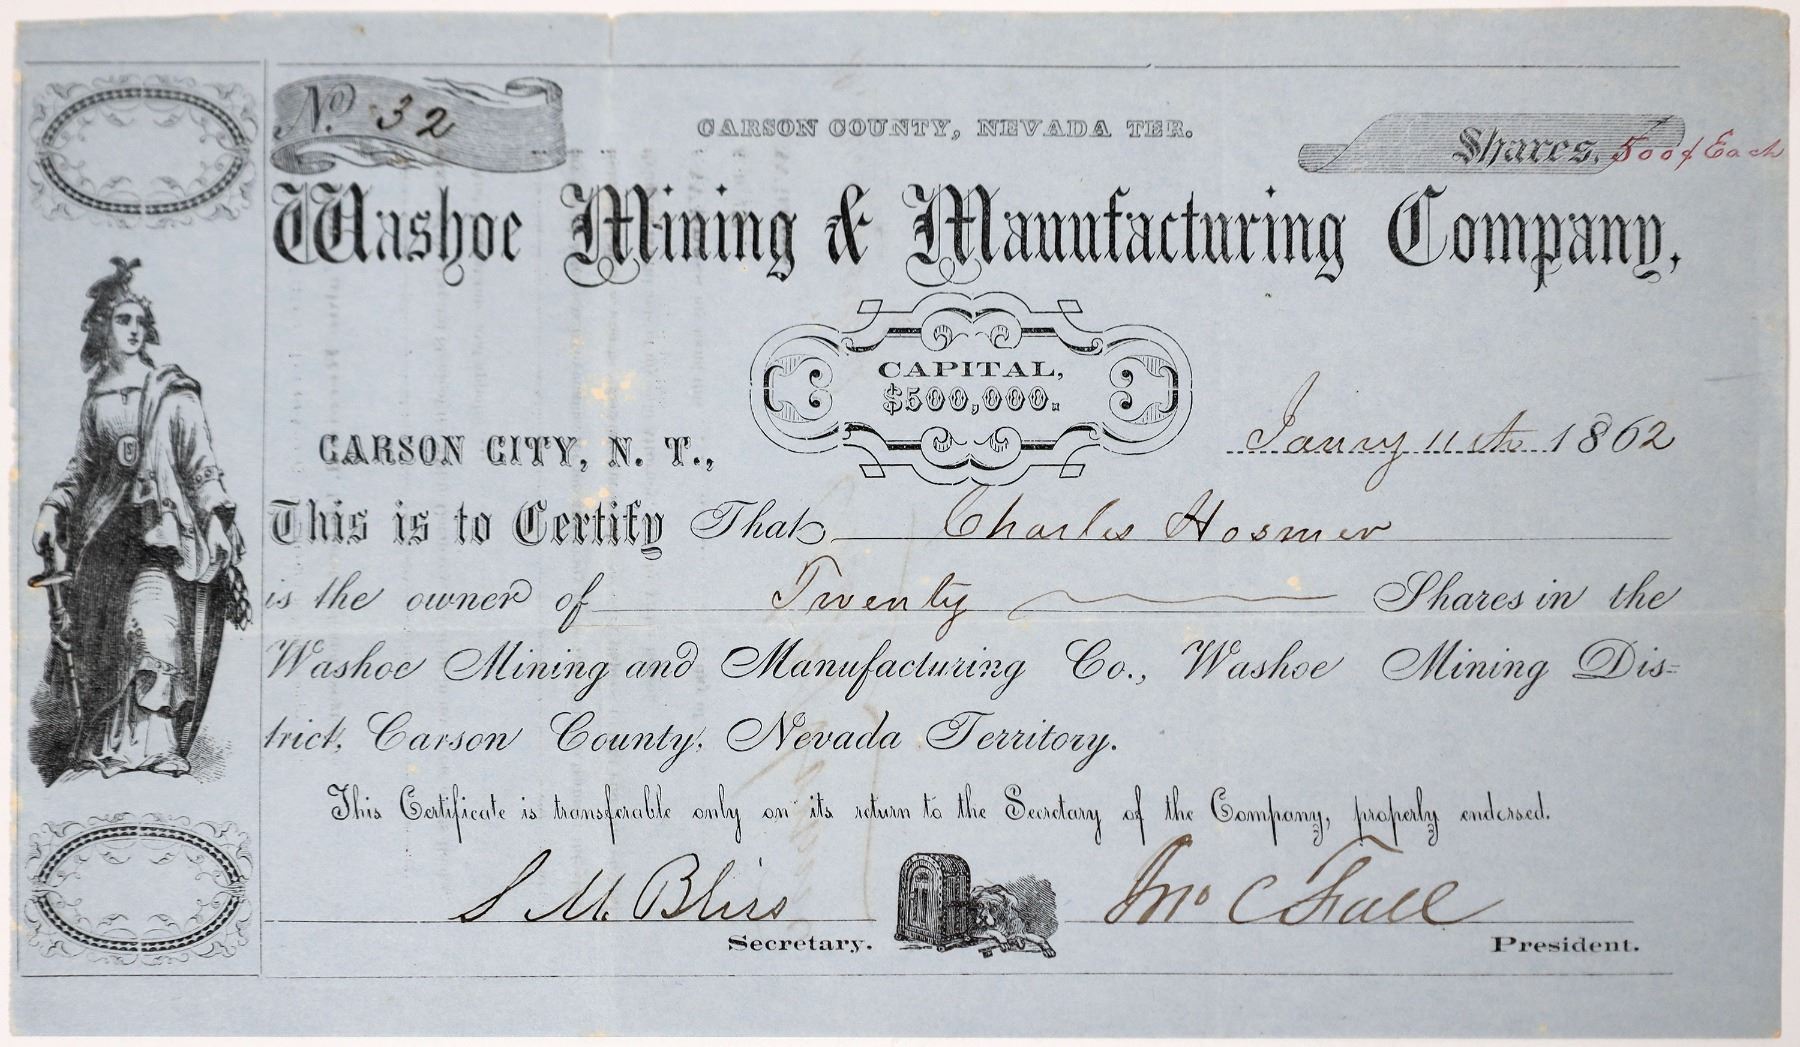 No. 32
CARSON COUNTY, NEVADA TER.
Shares, 500$ Each
Washoe Mining & Manufacturing Company,
CAPITAL,
$500,000.
CARSON CITY, N. T., Janry 11th 1862
This is to Certify That Charles Hosmer
is the owner of Twenty Shares in the
Washoe Mining and Manufacturing Co., Washoe Mining Dis=
trict, Carson County, Nevada Territory.
This Certificate is transferable only on its return to the Secretary of the Company, properly endorsed.
S M. Bliss Jno C Fall
Secretary. President.